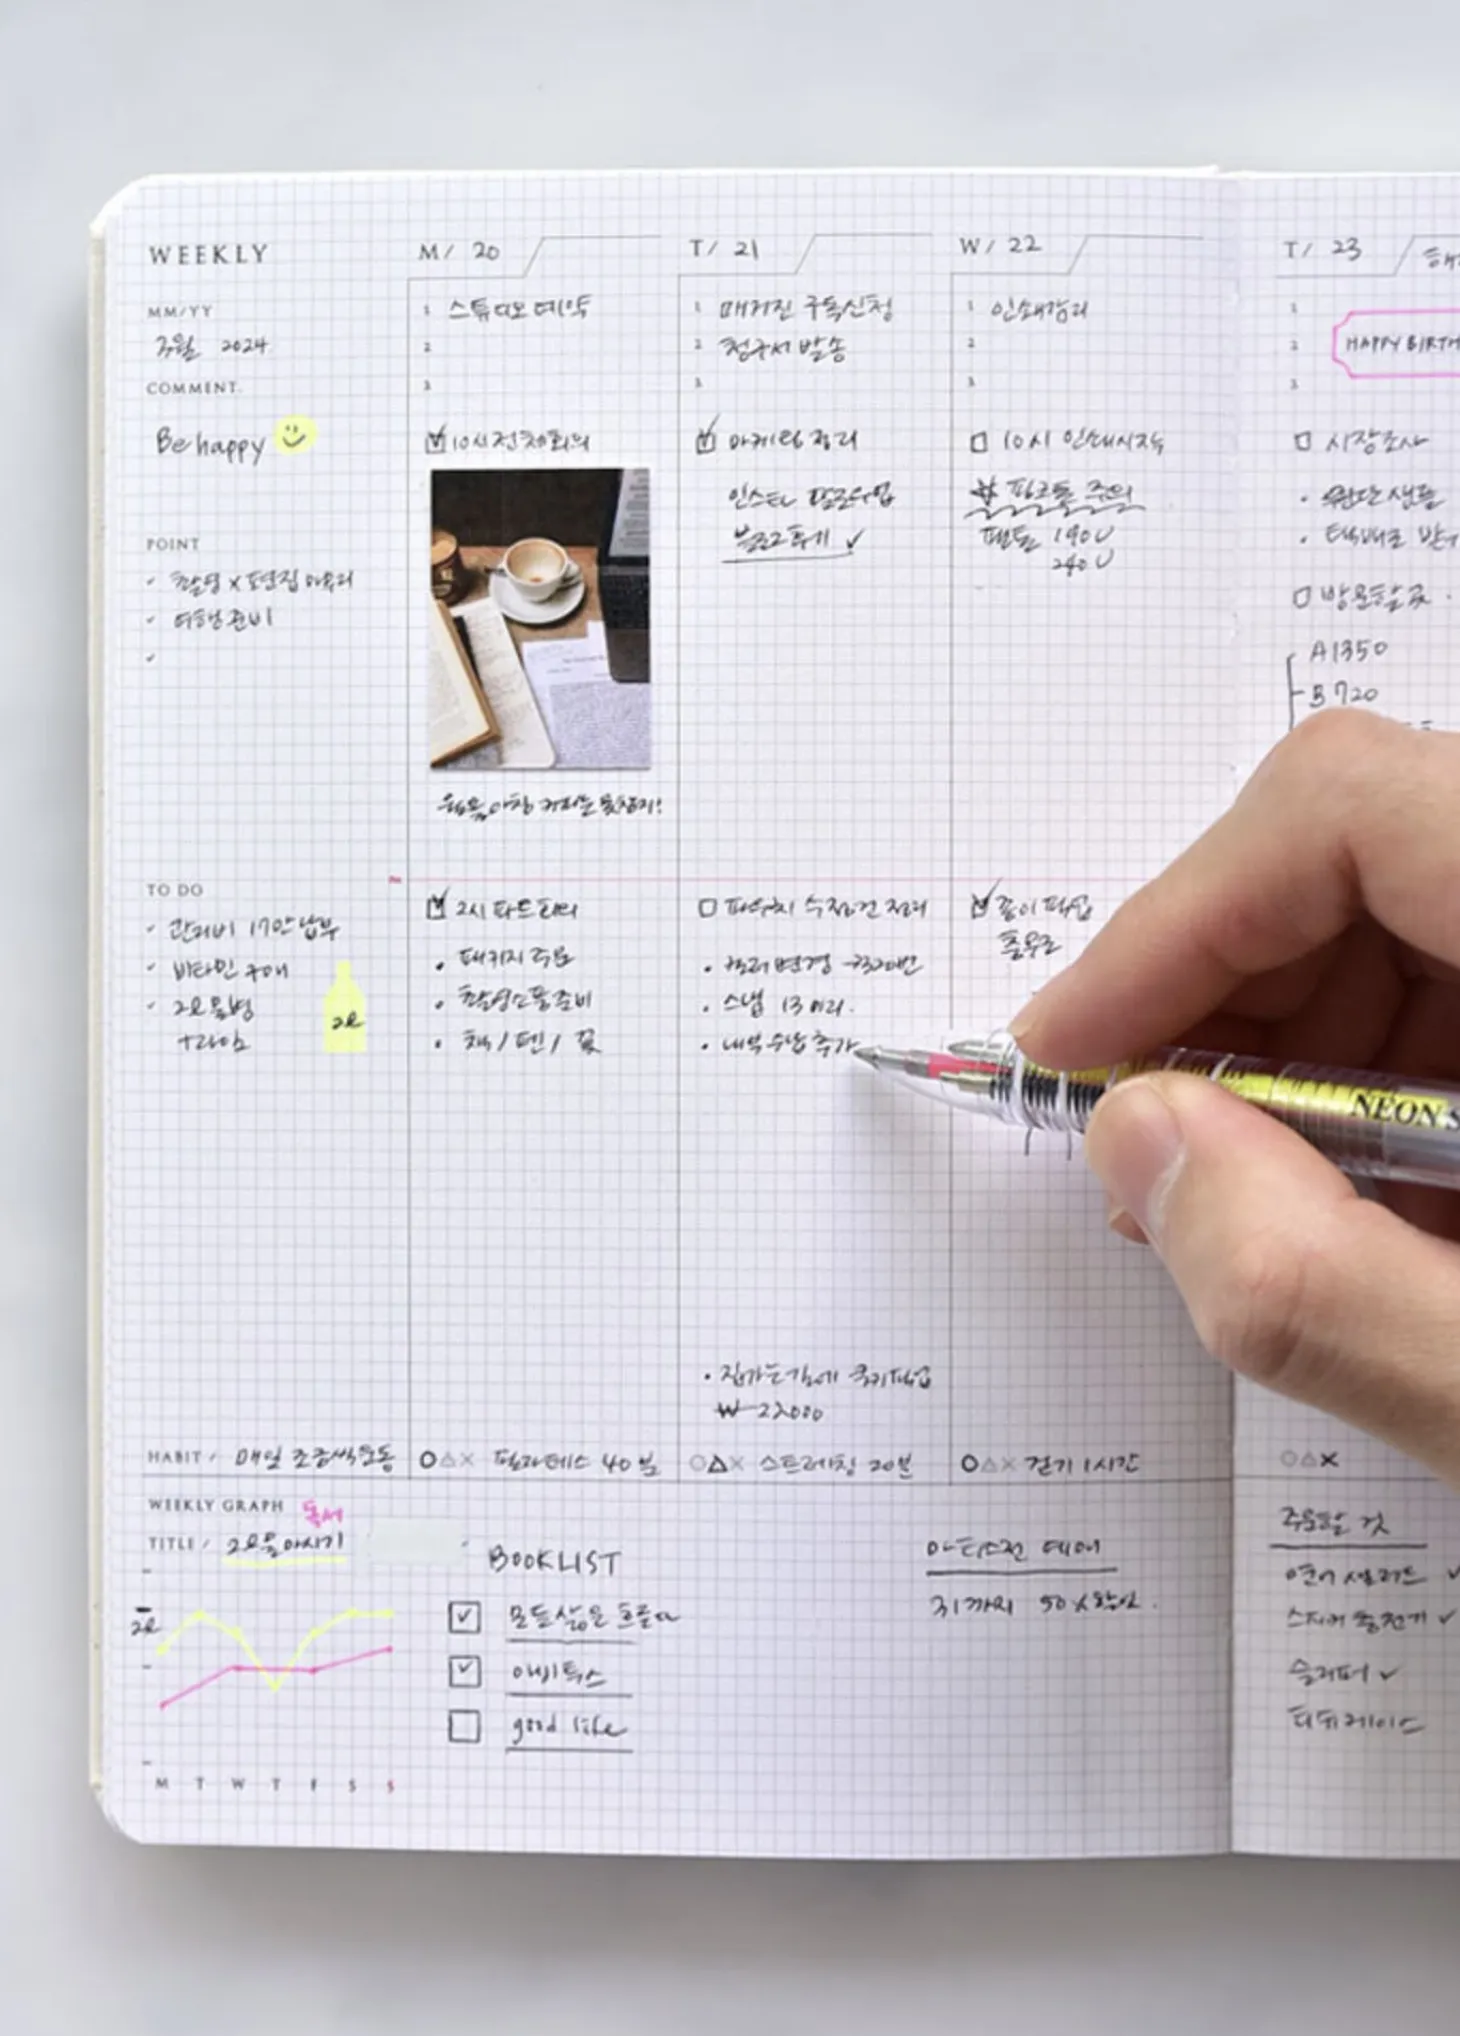 WEEKLY
MM/YY
3월 2024
COMMENT.
Be happy
POINT
촬영 x 편집 마무리
여행준비
TO DO
관리비 17만 납부
비타민 구매
2L 물병
+라임
2L
HABIT / 매일 조금씩 운동
M / 20
1 스튜디오 예약
2
3
10시 전체회의
월요일 아침 커피는 못참지!
2시 파트회의
패키지 주문
촬영소품준비
책 / 펜 / 꽃
O△X 필라테스 40분
T / 21
1 매거진 구독신청
2 청구서 발송
3
마케팅 정리
인스타 팔로우업
블로그 후기 ✓
파우치 수정건 정리
컬러변경
스냅 13mm.
내부 수납 추가
집가는길에 쿠키픽업
₩ 22000
O△X 스트레칭 20분
W / 22
1 인쇄감리
2
3
10시 인쇄시작
핀트 주의
팬톤 190U
240U
종이 픽업
충무로
O△X 걷기 1시간
T / 23
1
2
3
HAPPY BIRTH
시장조사
원단샘플
방문할 곳.
A1350
B 720
O△X
WEEKLY GRAPH 독서
TITLE / 2L물마시기
2L
M T W T F S S
BOOKLIST
모든 삶은 흐른다
아비투스
good life
아티스전 예매
31까지 50% 할인.
주문할 것
연어 샐러드 ✓
스티커 충전기 ✓
슬리퍼 ✓
티슈케이스
NEON S